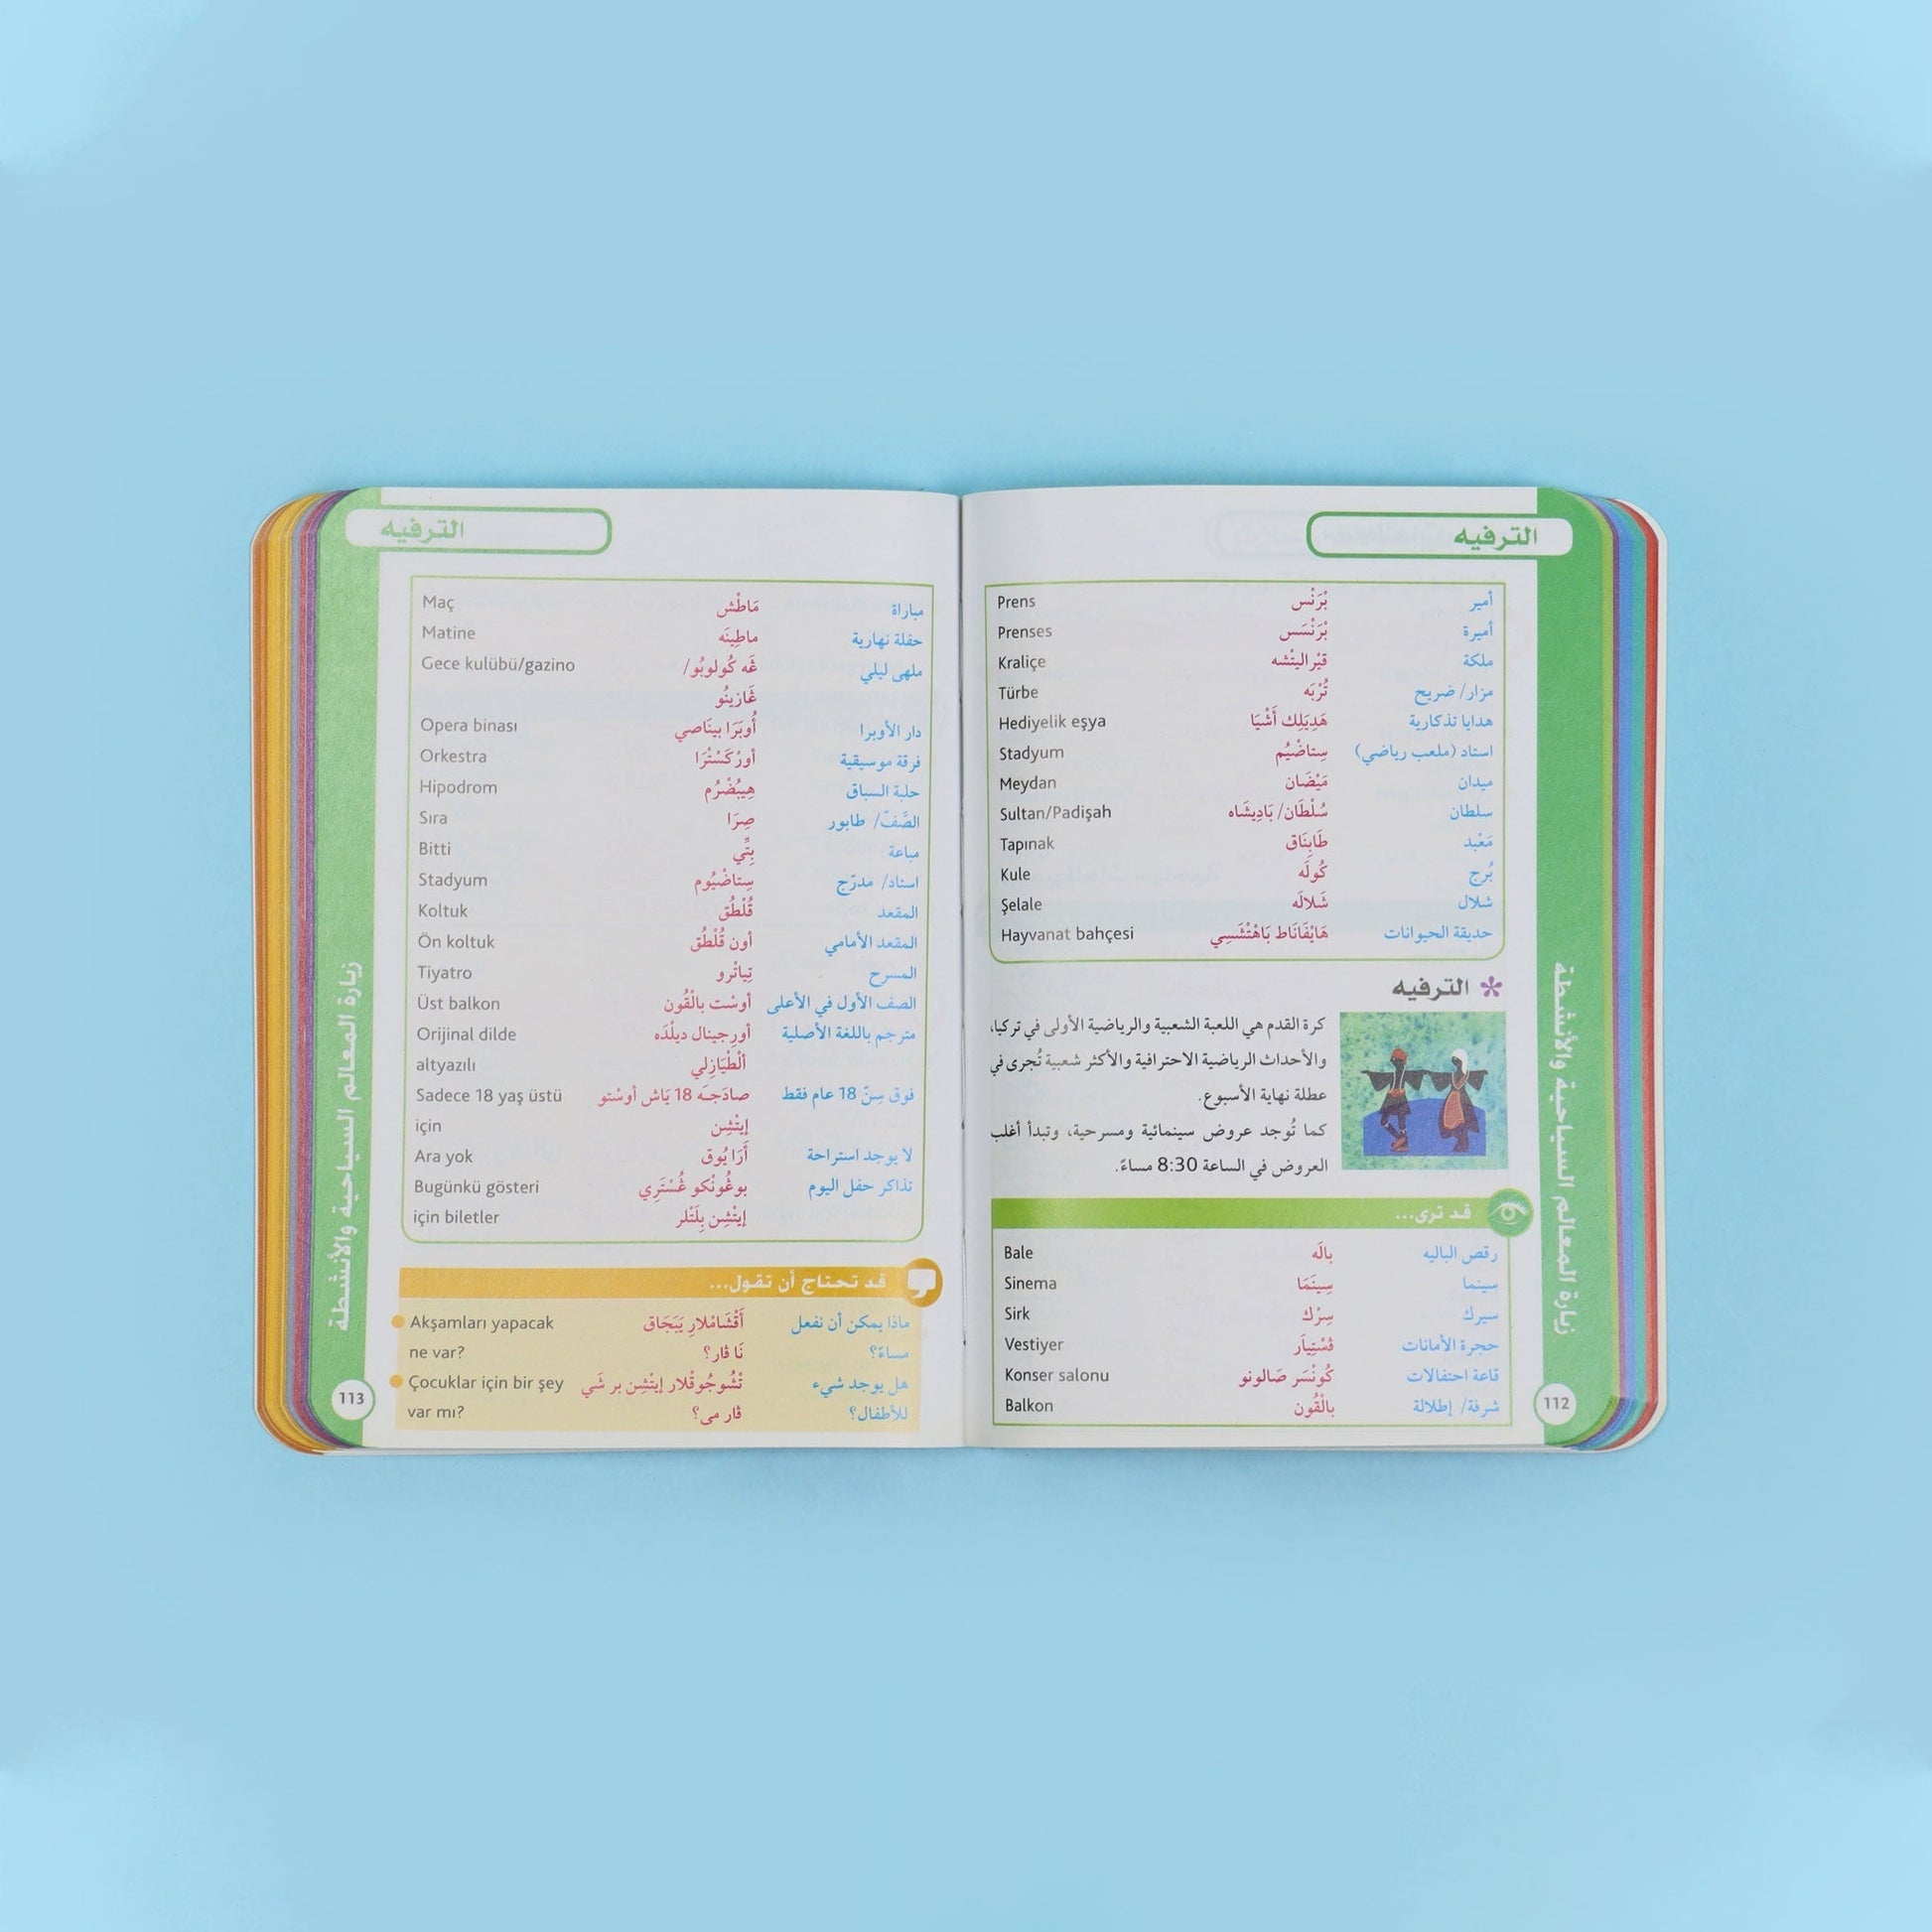 الترفيه
أمير بْرَنْس Prens
أميرة بْرَنْسَس Prenses
ملكة قيْراليتْشه Kraliçe
مزار/ ضريح تُرْبَه Türbe
هدايا تذكارية هَدِيَلِك أَشْيَا Hediyelik eşya
استاد (ملعب رياضي) سِتاضْيُم Stadyum
ميدان مَيْضَان Meydan
سلطان سُلْطَان/ بَادِيشَاه Sultan/Padişah
مَعْبد طَابِنَاق Tapınak
بُرج كُولَه Kule
شلال شَلالَه Şelale
حديقة الحيوانات هَايْفَانَاط بَاهْتْشَسِي Hayvanat bahçesi
* الترفيه
كرة القدم هي اللعبة الشعبية والرياضية الأولى في تركيا،
والأحداث الرياضية الاحترافية والأكثر شعبية تُجرى في
عطلة نهاية الأسبوع.
كما تُوجد عروض سينمائية ومسرحية، وتبدأ أغلب
العروض في الساعة 8:30 مساءً.
قد ترى...
رقص الباليه بالَه Bale
سينما سِينَمَا Sinema
سيرك سِرْك Sirk
حجرة الأمانات ڤسْتِيَار Vestiyer
قاعة احتفالات كُونْسَر صَالونو Konser salonu
شرفة/ إطلالة بالْقُون Balkon
زيارة المعالم السياحية والأنشطة
112
الترفيه
مباراة مَاطْش Maç
حفلة نهارية ماطِينَه Matine
ملهى ليلي غَه كُولوبُو/ Gece kulübü/gazino
غَازينُو
دار الأوبرا أُوبَرَا بينَاصي Opera binası
فرقة موسيقية أورْكَسْتْرَا Orkestra
حلبة السباق هِيبُضْرُم Hipodrom
الصَّفّ/ طابور صِرَا Sıra
مباعة بِتِّي Bitti
استاد/ مدرّج سِتاضْيُوم Stadyum
المقعد قُلْطُق Koltuk
المقعد الأمامي أون قُلْطُق Ön koltuk
المسرح تِياتْرو Tiyatro
الصف الأول في الأعلى أوسْت بالْقُون Üst balkon
مترجم باللغة الأصلية أورجينال ديلْدَه Orijinal dilde
ألْطْيَازِلي altyazılı
فوق سِنّ 18 عام فقط صادَجـَه 18 يَاش أوسْتو Sadece 18 yaş üstü
إيتْشِن için
لا يوجد استراحة أَرَا يُوق Ara yok
تذاكر حفل اليوم بوغُونْكو غُسْتَرِي Bugünkü gösteri
إيتْشِن بِلَتْلر için biletler
قد تحتاج أن تقول...
ماذا يمكن أن نفعل أَقْشَامْلارِ يَبَجَاق Akşamları yapacak
مساءً؟ نَا ڤار؟ ne var?
هل يوجد شيء تْشُوجُوقْلار إيتْشِن بر شَي Çocuklar için bir şey
للأطفال؟ ڤار مى؟ var mı?
زيارة المعالم السياحية والأنشطة
113